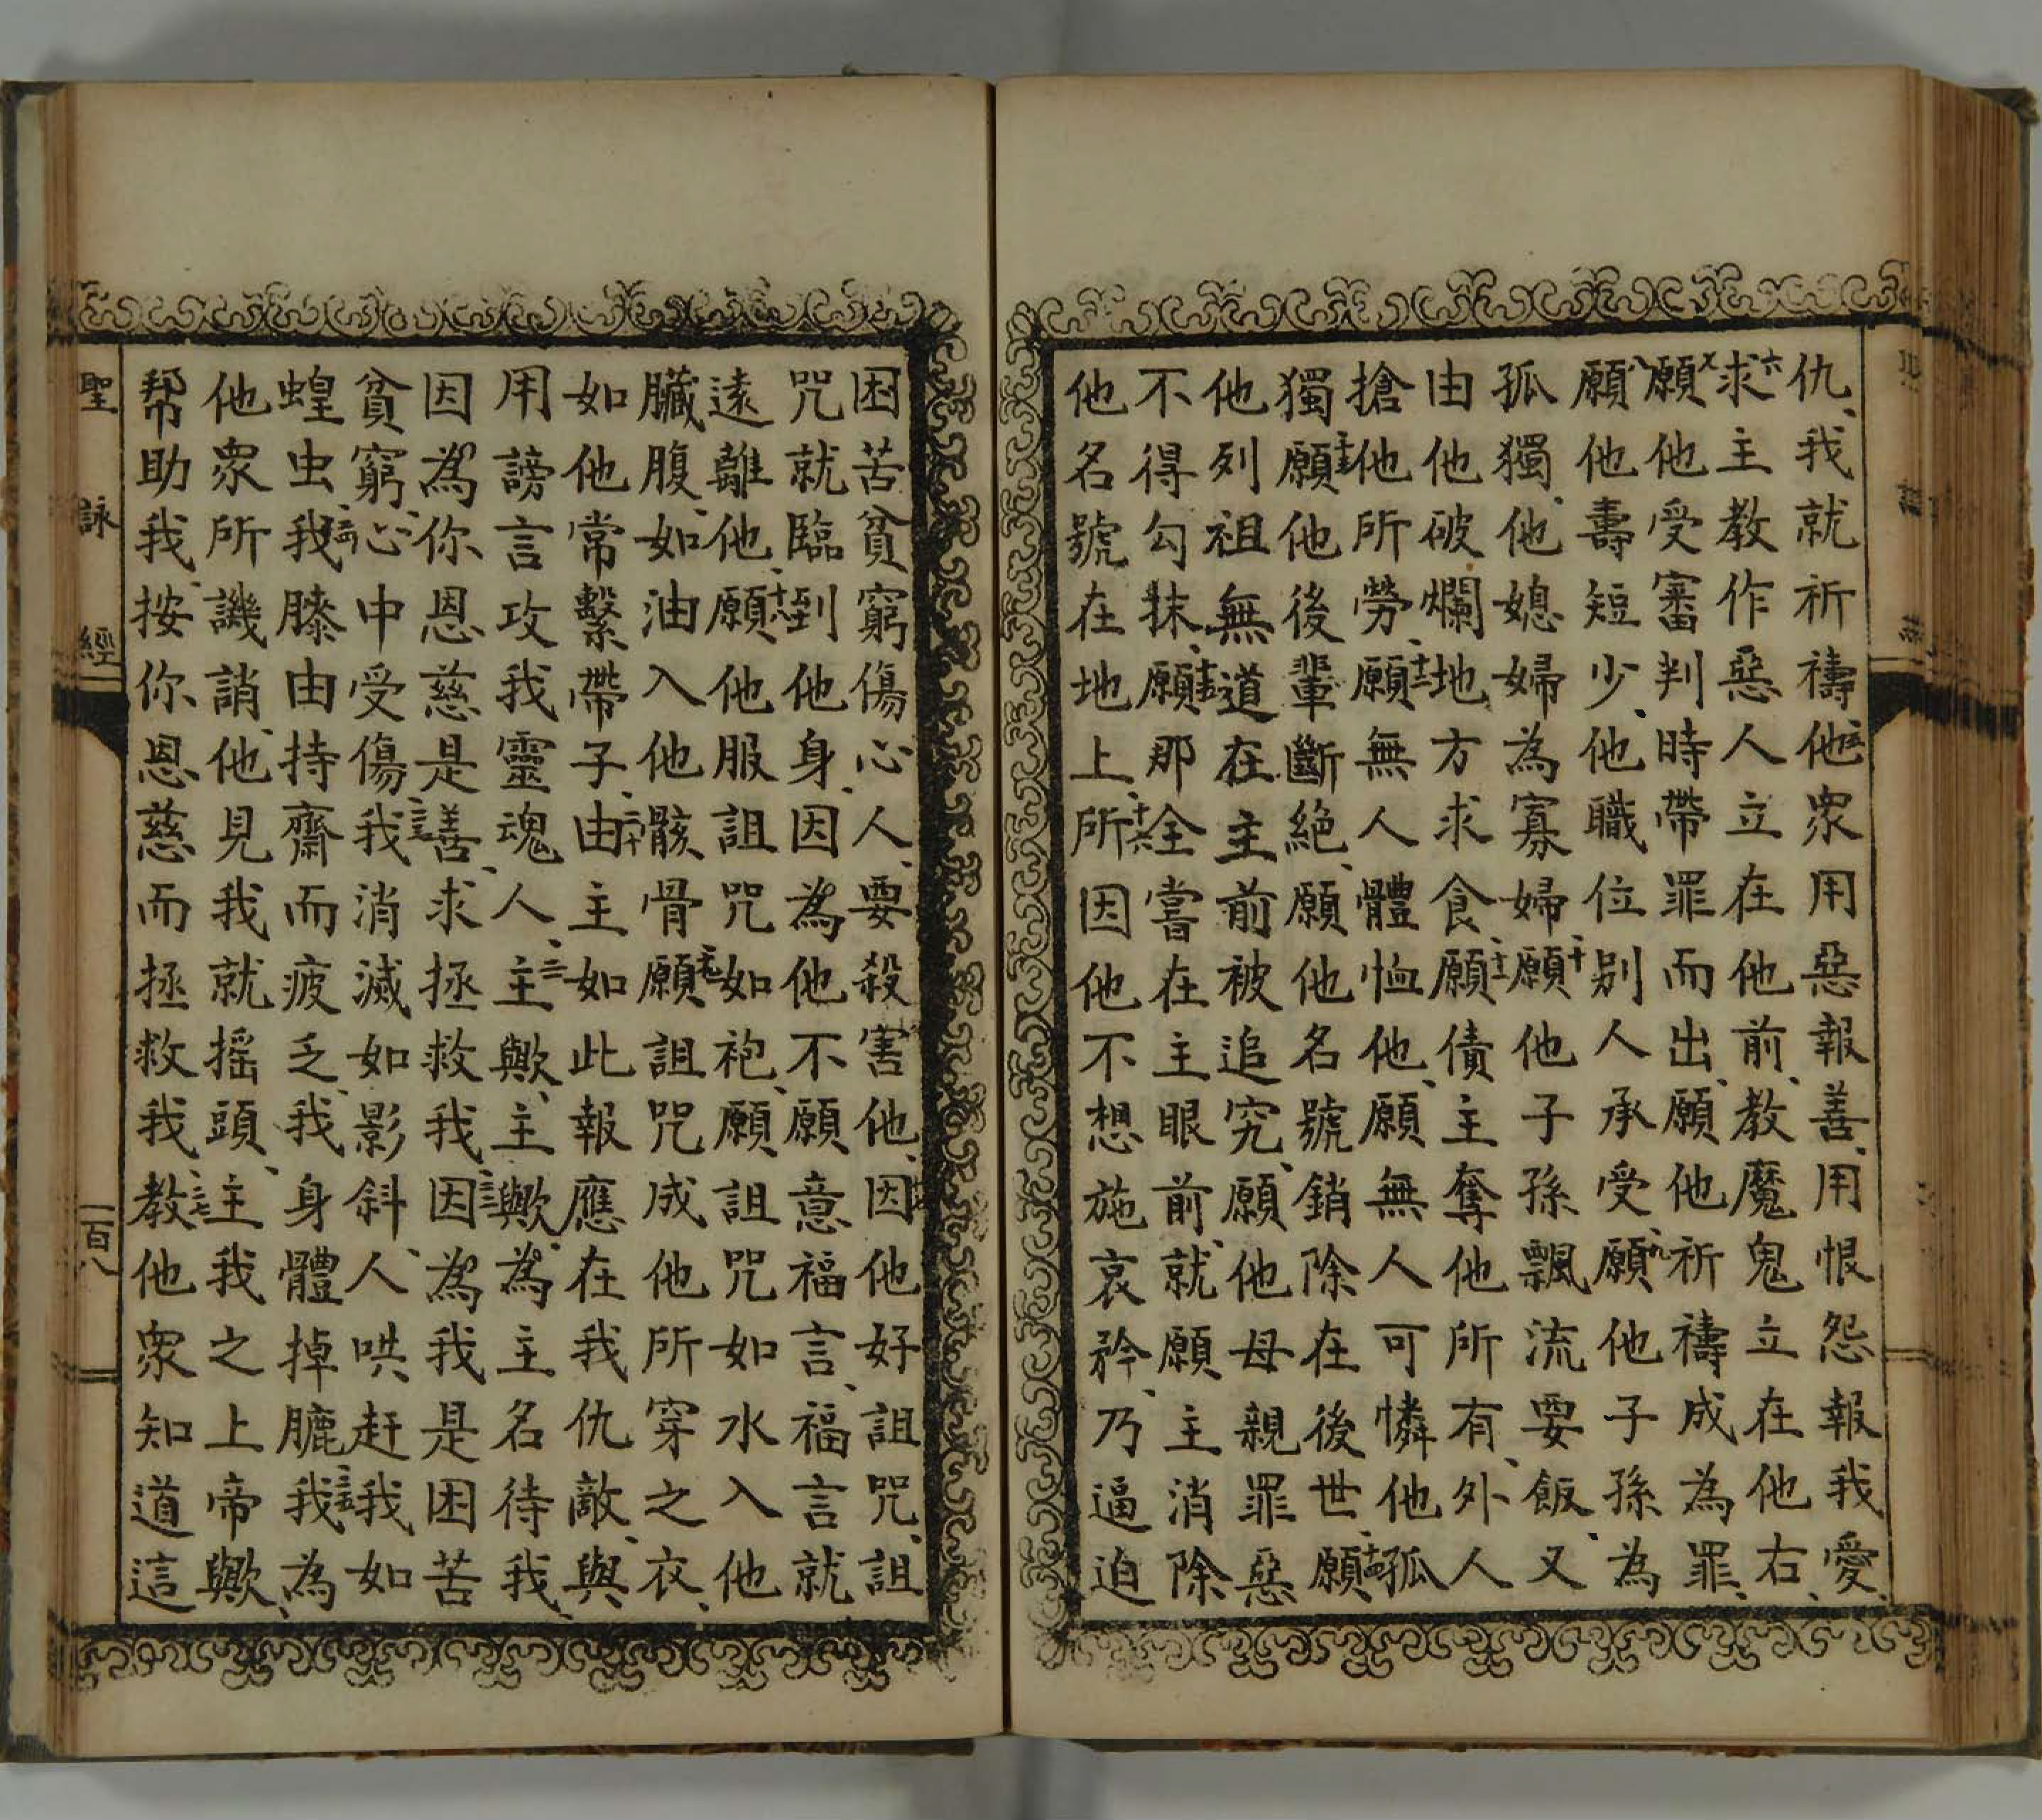 仇、我就祈禱、五他衆用惡報善、用恨怨報我愛、
六求主教作惡人立在他前、教魔鬼立在他右、
七願他受審判時帶罪而出、願他祈禱成為罪、
八願他壽短少、他職位別人承受、九願他子孫為
孤獨、他媳婦為寡婦、十願他子孫飄流要飯、又
由他破爛地方求食、十一願債主奪他所有、外人
搶他所勞、十二願無人體恤他、願無人可憐他孤
獨、十三願他後輩斷絕、願他名號銷除在後世、十四願
他列祖無道在主前被追究、願他母親罪惡
不得勾抹、十五願那全嘗在主眼前、就願主消除
他名號在地上、十六所因他不想施哀矜、乃逼迫
困苦貧窮傷心人、要殺害他、十七因他好詛咒、詛
咒就臨到他身、因為他不願意福言、福言就
遠離他、十八願他服詛咒如袍、願詛咒如水入他
臟腹、如油入他骸骨、十九願詛咒成他所穿之衣、
如他常繫帶子、二十由主如此報應在我仇敵、與
用謗言攻我靈魂人、二一主歟、主歟、為主名待我、
因為你恩慈是善、求拯救我、二二因為我是困苦
貧窮、心中受傷、二三我消滅如影斜、人哄赶我如
蝗虫、二四我膝由持齋而疲乏、我身體掉臕、二五我為
他衆所譏誚、他見我就摇頭、二六主我之上帝歟、
帮助我、按你恩慈而拯救我、二七教他衆知道這
聖詠經
一百八